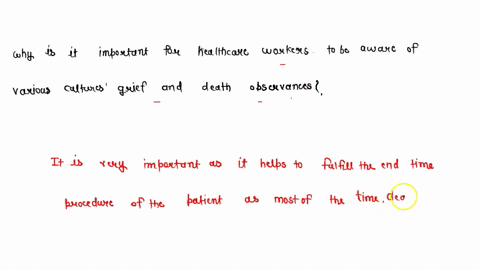 why is it important for healthcare workers to be aware of
various cultures' grief and death observances?.
It is very important as it helps to fulfill the end time
procedure of the patient as most of the time, dea